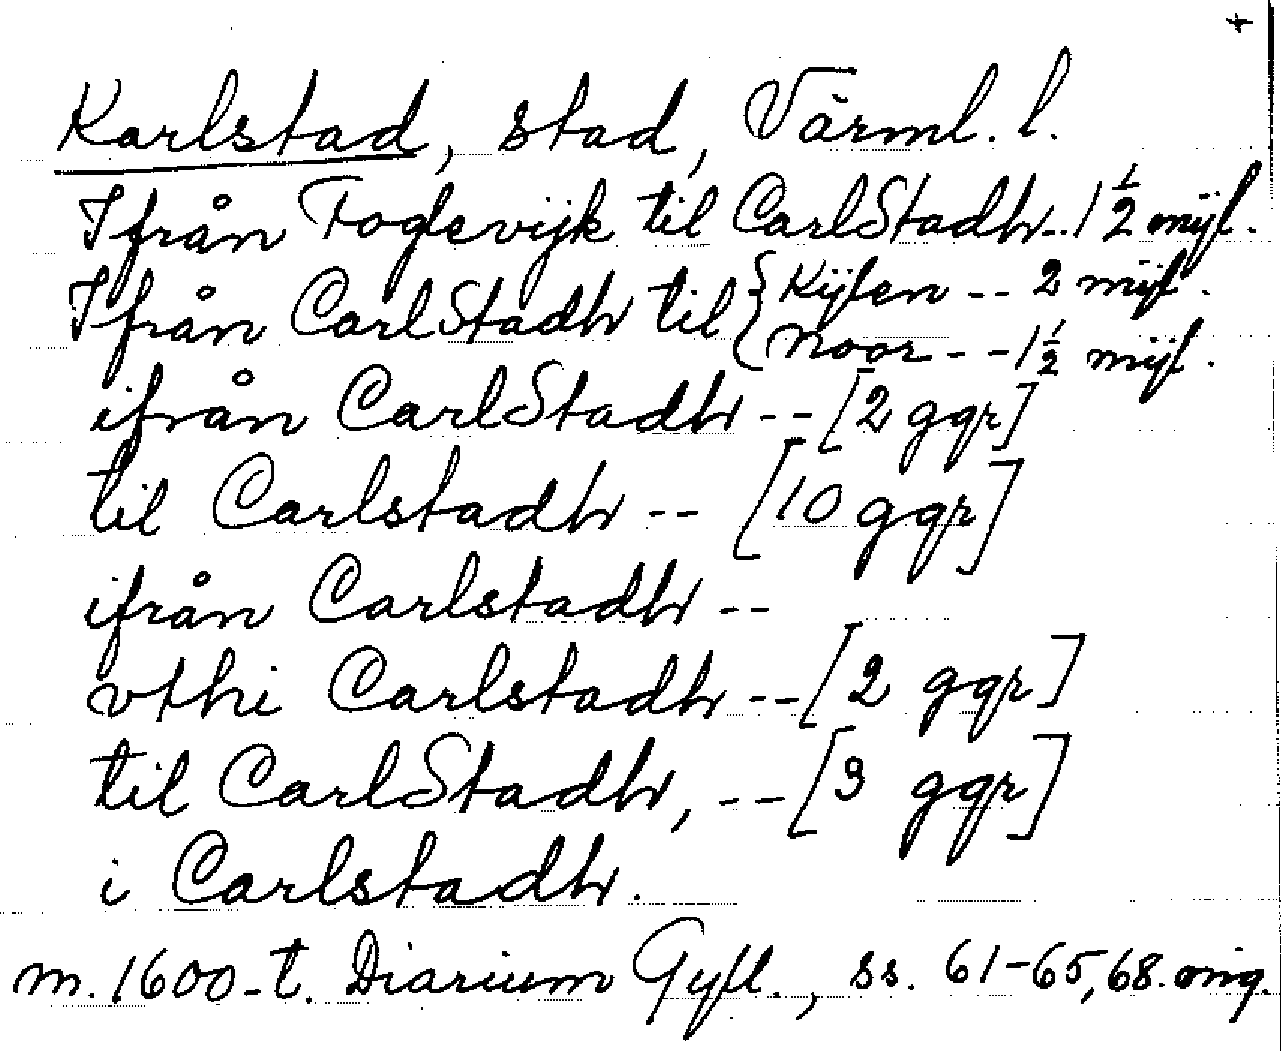 +
Karlstad, stad, Värml. l.
Ifrån Foglevijk til CarlStadh -- 1 1/2 mijl.
Ifrån CarlStadh til { Kijlen -- 2 mijl.
Noor -- 1 1/2 mijl.
ifrån CarlStadh -- [2 ggr]
til Carlstadh -- [10 ggr]
ifrån Carlstadh --
vthi Carlstadh -- [2 ggr]
til CarlStadh, -- [3 ggr]
i Carlstadh.
m. 1600-t. Diarium Gyll., ss. 61-65, 68. orig.